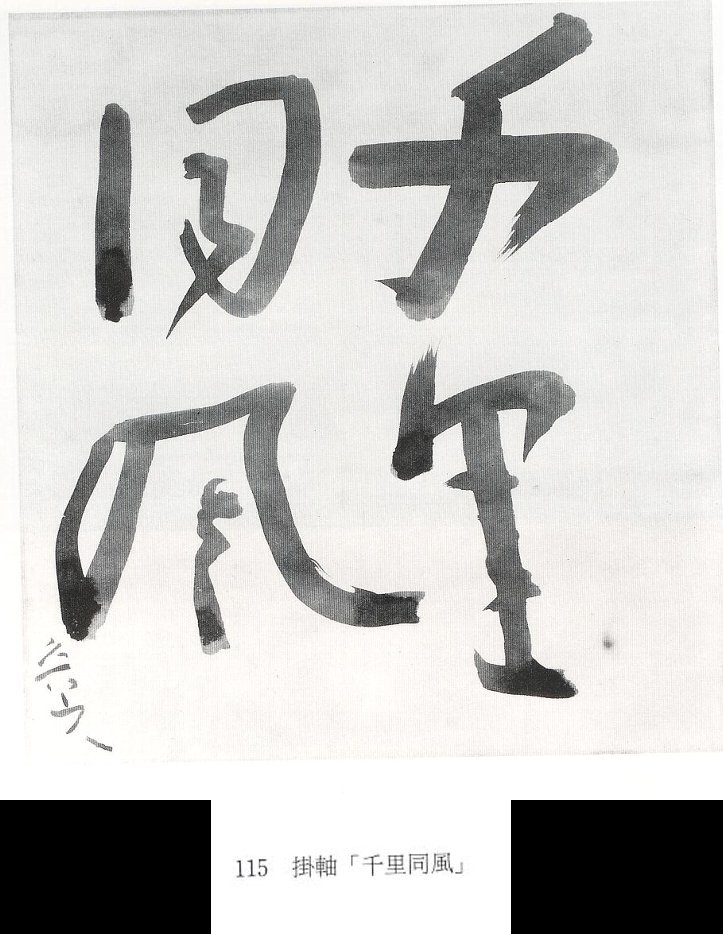 千里
同風
115 掛軸「千里同風」